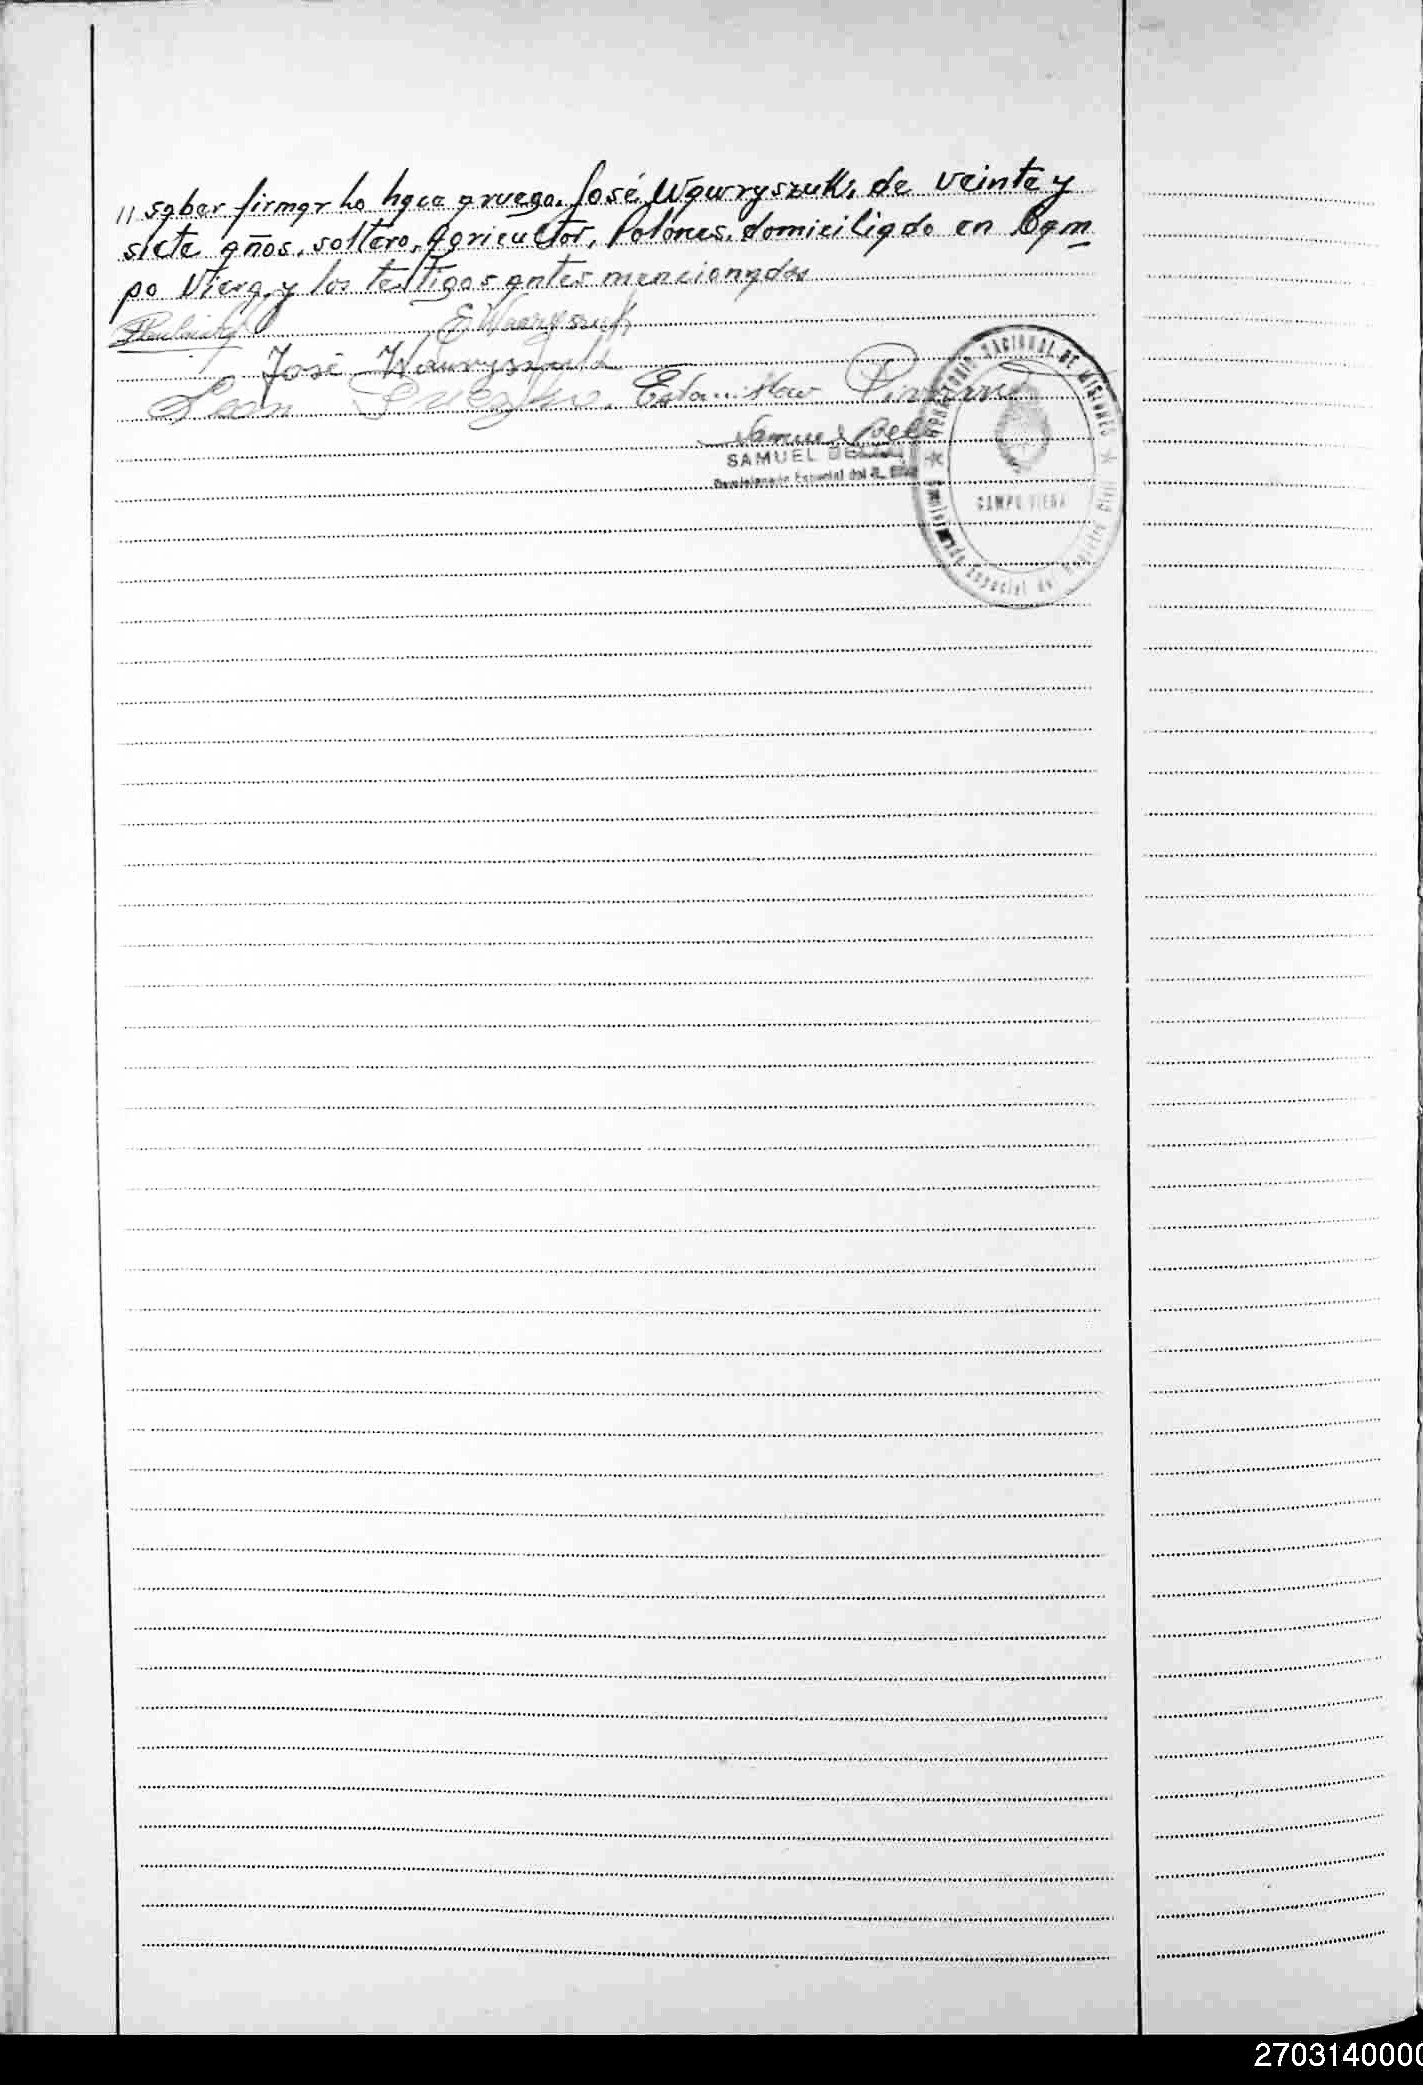 // saber firmar lo hace a ruego. José Wawryszuk, de veinte y
siete años, soltero, Agricultor, Polones, domiciliado en Cam
po Viera, y los testigos antes mencionados
E Wawryszuk
José Wawryszuk
Leon Estanislaw
Samuel
SAMUEL
Especial del R.
TERRITORIO NACIONAL DE MISIONES
CAMPO VIERA
Comisionado Especial del Registro Civil
2703140000